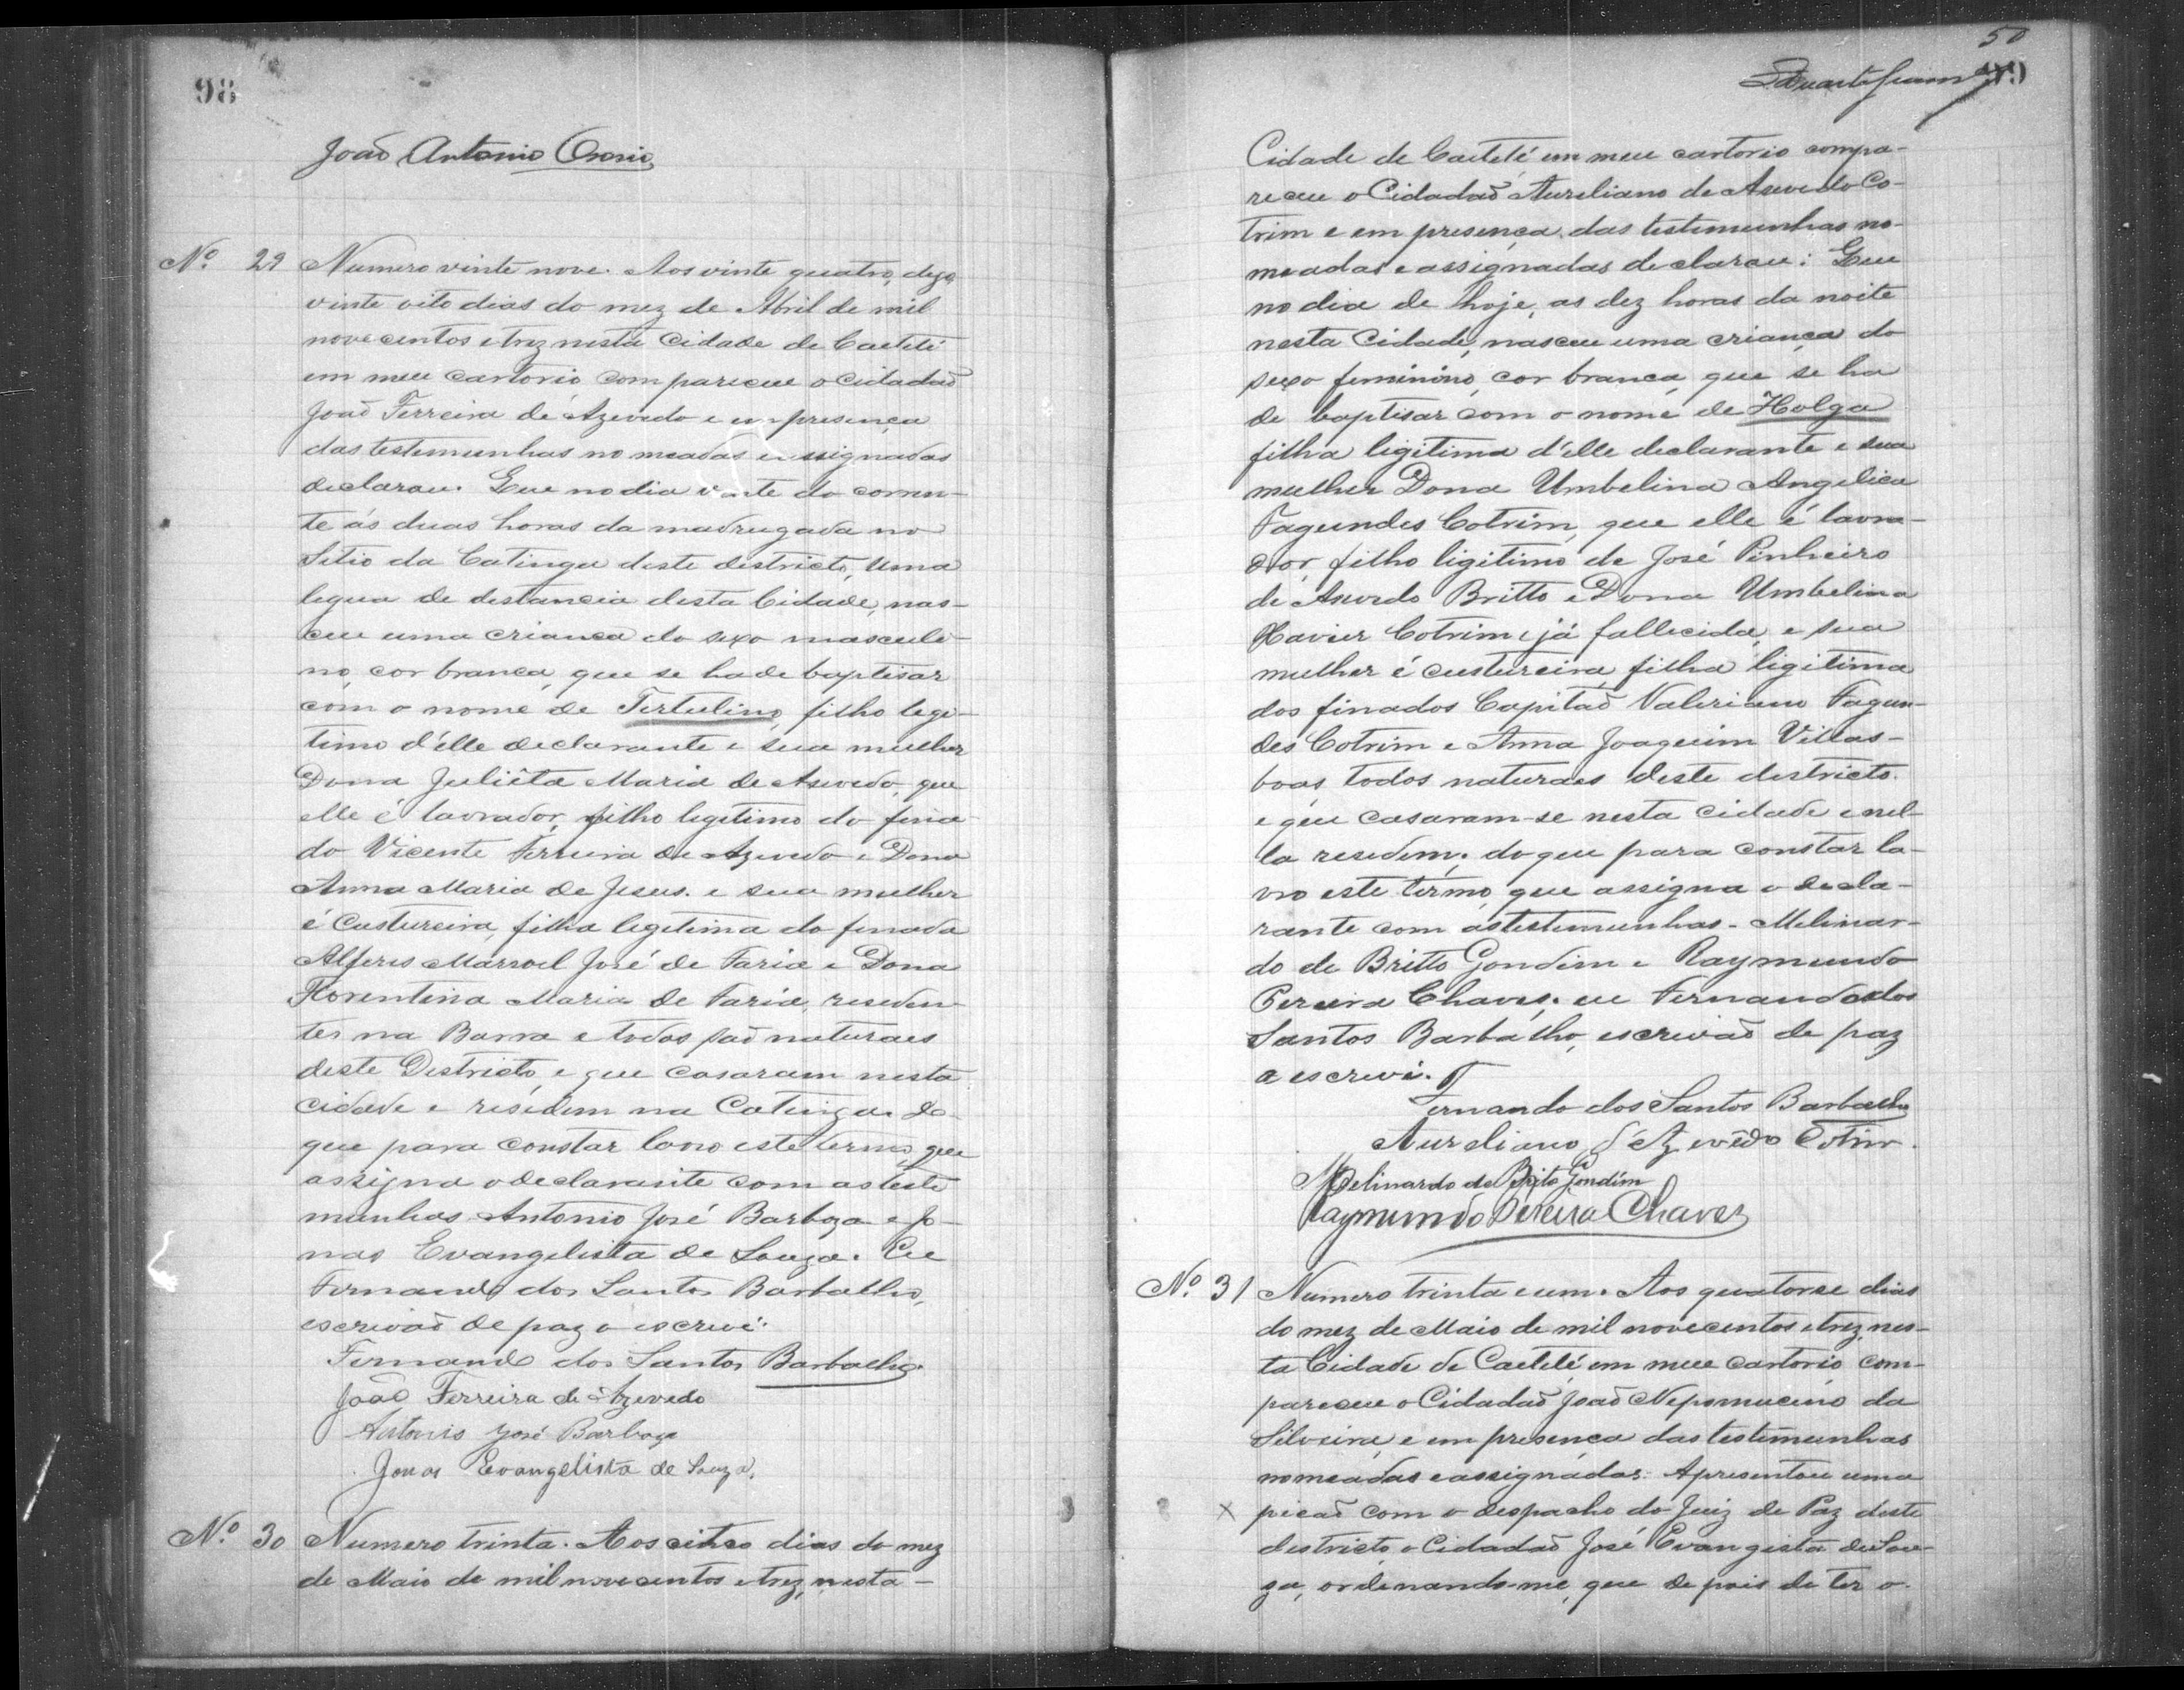 98
João Antonio Osorio
Nº 29 Numero vinte nove. Aos vinte quatro, digo,
vinte oito dias do mez de Abril de mil
nove centos e trez nesta Cidade de Caeteté
em meu cartorio compareceu o cidadão
João Ferreira de Azevedo e em presença
das testemunhas nomeadas e assignadas
declarou. Que no dia vinte do corren-
te ás duas horas da madrugada no
Sitio da Catinga deste districto, uma
legua de distancia desta Cidade, nas-
ceu uma criança do sexo masculi-
no, cor branca, que se ha de baptisar
com o nome de Tertulino, filho legi-
timo d'élle declarante e sua mulher
Dona Juliêta Maria de Asevedo, que
elle é lavrador, filho legitimo do fina-
do Vicente Ferreira de Azevedo e Dona
Anna Maria de Jesus. e sua mulher
é Custureira, filha legitima do finado
Alferes Manoel José de Faria e Dona
Florentina Maria de Faria, residen-
tes na Barra e todos são naturaes
deste Districto, e que casaram nesta
cidade e residem na Catinga. Do
que para constar lavro este termo, que
assigna o declarante com as teste
munhas Antonio José Barboza e Jo-
nas Evangelista de Souza. Eu
Fernando dos Santos Barbalho,
escrivão de paz o escrevi.
Fernando dos Santos Barbalho.
João Ferreira de Azevedo
Antonio José Barboza
Jonas Evangelista de Souza.
Nº 30 Numero trinta. Aos cinco dias do mez
de Maio de mil nove centos e trez, nesta-
50
99
Cidade de Caeteté em meu cartorio compa-
receu o Cidadão Aureliano de Asevedo Co-
trim e em presença das testemunhas no-
meadas e assignadas declarou: Que
no dia de hoje, as dez horas da noite
nesta Cidade, nasceu uma criança do
sexo feminino, cor branca, que se ha
de baptisar com o nome de Holga
filha ligitima d'élle declarante e sua
mulher Dona Umbelina Angelica
Fagundes Cotrim, que elle é lavra-
dor, filho ligitimo de José Pinheiro
de Asevedo Britto e Dona Umbelina
Xavier Cotrim, já fallecida, e sua
mulher é custureira, filha ligitima
dos finados Capitão Valeriano Fagun-
des Cotrim e Anna Joaquim Villas-
boas todos naturaes deste destricto.
e que casaram-se nesta cidade e nel-
la residem; do que para constar la-
vro este termo, que assigna o decla-
rante com as testemunhas - Melinar-
do de Britto Gondim e Raymundo
Pereira Chaves; eu Fernando dos
Santos Barbalho, escrivão de paz
o escrevi.
Fernando dos Santos Barbalho
Aureliano d'Azevêdo Cotrim.
Melinardo de Brito Gondim
Raymundo Pereira Chaves
Nº 31 Numero trinta e um. Aos quatorse dias
do mez de Maio de mil nove centos e trez, nes-
ta Cidade de Caeteté, em meu cartorio, com-
pareceu o Cidadão João Nepomuceno da
Silveira, e em presença das testemunhas
nomeadas e assignadas: Apresentou uma
x picão com o despacho do Juiz de Paz deste
destricto, o Cidadão José Evangista de Sou-
za, ordenando-me, que depois de ter o